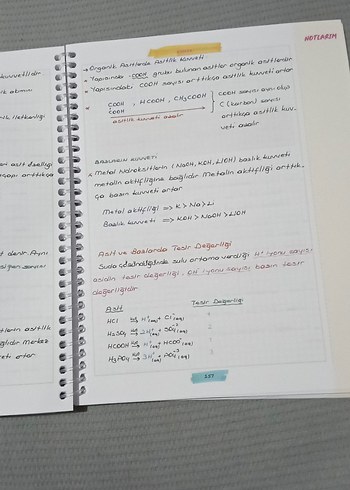 NOTLARIM
→ Organik Asitlerde Asitlik kuvveti
* Yapısında -COOH grubu bulunan asitler organik asitlerdir
* Yapısındaki COOH sayısı arttıkça asitlik kuvveti artar
COOH , HCOOH , CH₃COOH
COOH
asitlik kuvveti azalır
COOH sayısı aynı olup
C (karbon) sayısı
arttıkça asitlik kuv-
veti azalır
BAZLARIN KUVVETİ
* Metal hidroksitlerin (NaOH, KOH, LiOH) bazlık kuvveti
metalin aktifliğine bağlıdır. Metalin aktifliği arttık-
ça bazın kuvveti artar
Metal aktifliği => K > Na > Li
Bazlık kuvveti => KOH > NaOH > LiOH
Asit ve Bazlarda Tesir Değerliği
Suda çözündüğünde sulu ortama verdiği H⁺ iyonu sayısı
asidin tesir değerliği, OH⁻ iyonu sayısı bazın tesir
değerliğidir
Asit Tesir Değerliği
HCl → H⁺(aq) + Cl⁻(aq) 1
H₂SO₄ → 2H⁺(aq) + SO₄⁻²(aq) 2
HCOOH → H⁺(aq) + HCOO⁻(aq) 1
H₃PO₄ → 3H⁺(aq) + PO₄⁻³(aq) 3